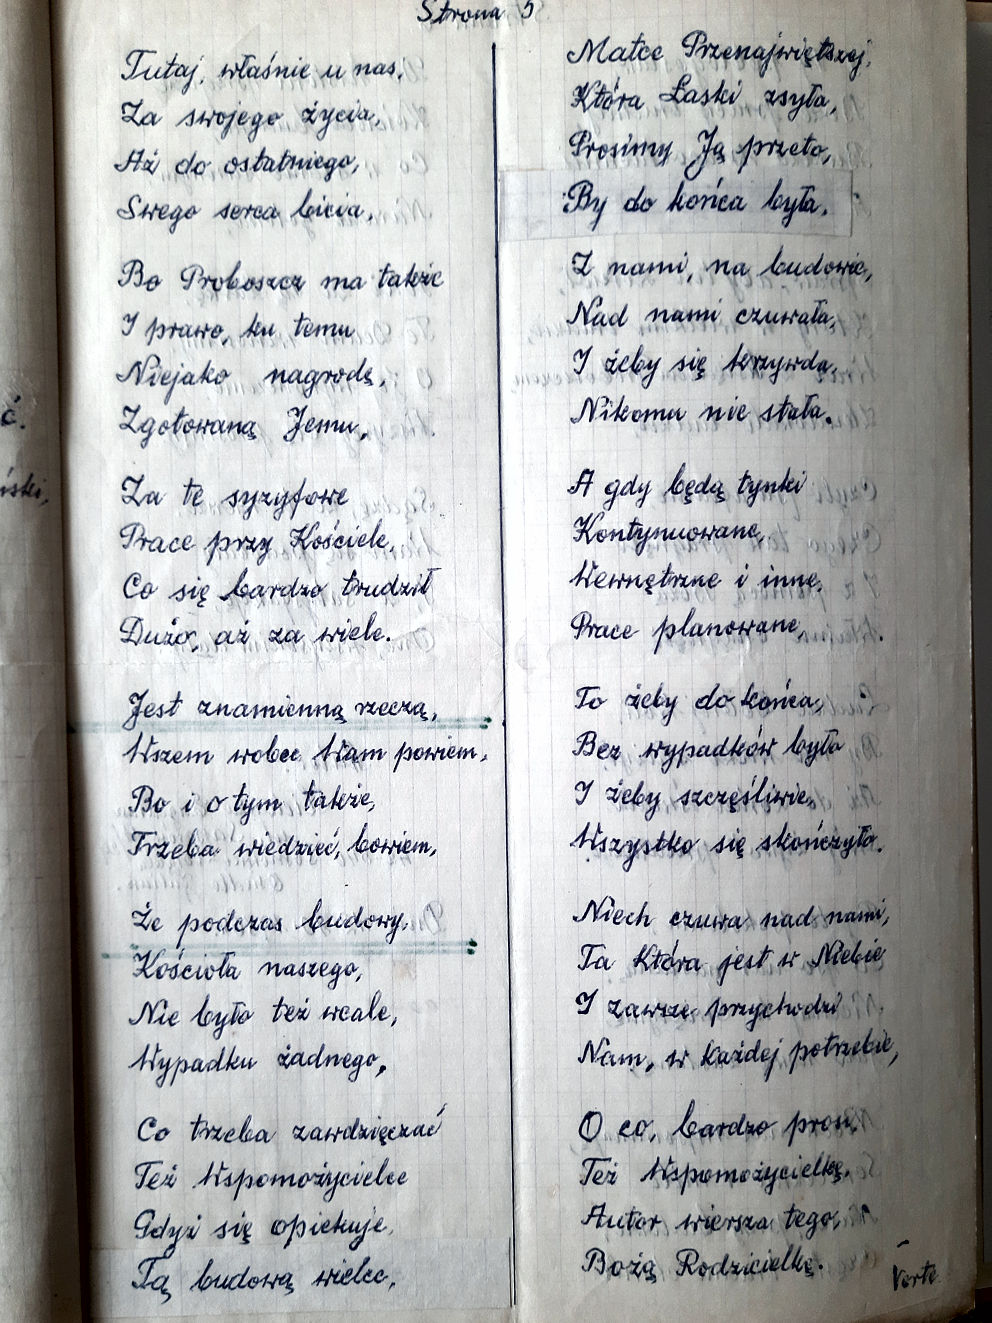 Strona 5
Tutaj, właśnie u nas,
Za swojego życia,
Aż do ostatniego,
Swego serca bicia,
Bo Proboszcz ma także
I prawo, ku temu
Niejako nagrodę,
Zgotowaną Jemu,
Za te syzyfowe
Prace przy Kościele,
Co się bardzo trudził
Dużo, aż za wiele.
Jest znamienną rzeczą,
Wszem wobec Wam powiem,
Bo i o tym także,
Trzeba wiedzieć, bowiem,
Że podczas budowy,
Kościoła naszego,
Nie było też wcale,
Wypadku żadnego,
Co trzeba zawdzięczać
Też Wspomożycielce
Gdyż się opiekuje,
Tą budową wielce,
Matce Przenajwiętszej,
Która Łaski zsyła,
Prosimy Ją przeto,
By do końca była,
Z nami, na budowie,
Nad nami czuwała,
I żeby się krzywda,
Nikomu nie stała.
A gdy będą tynki
Kontynuowane,
Wewnętrzne i inne,
Prace planowane,
To żeby do końca,
Bez wypadków było
I żeby szczęśliwie,
Wszystko się skończyło.
Niech czuwa nad nami,
Ta Która jest w Niebie
I zawsze przychodzi
Nam, w każdej potrzebie,
O co, bardzo prosi,
Też Wspomożycielkę,
Autor wiersza tego,
Bożą Rodzicielkę.
Verte
ć.
ński,